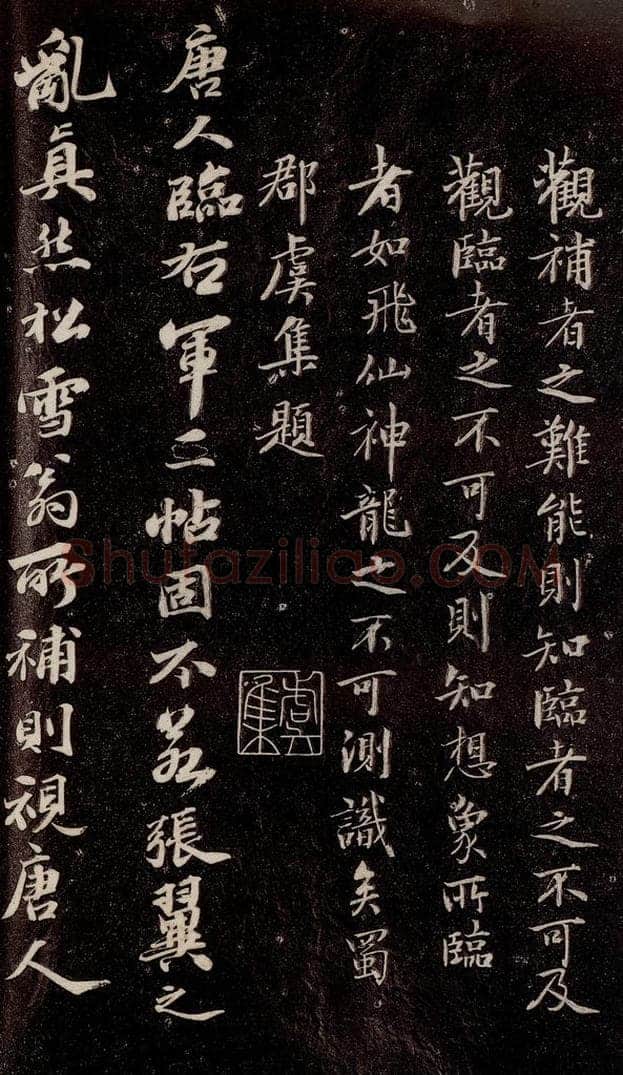 觀補者之難能則知臨者之不可及
觀臨者之不可及則知想象所臨
者如飛仙神龍之不可測識矣蜀
郡虞集題
虞集
唐人臨右軍二帖固不若張翼之
亂真然松雪翁所補則視唐人
Shufaziliao.COM